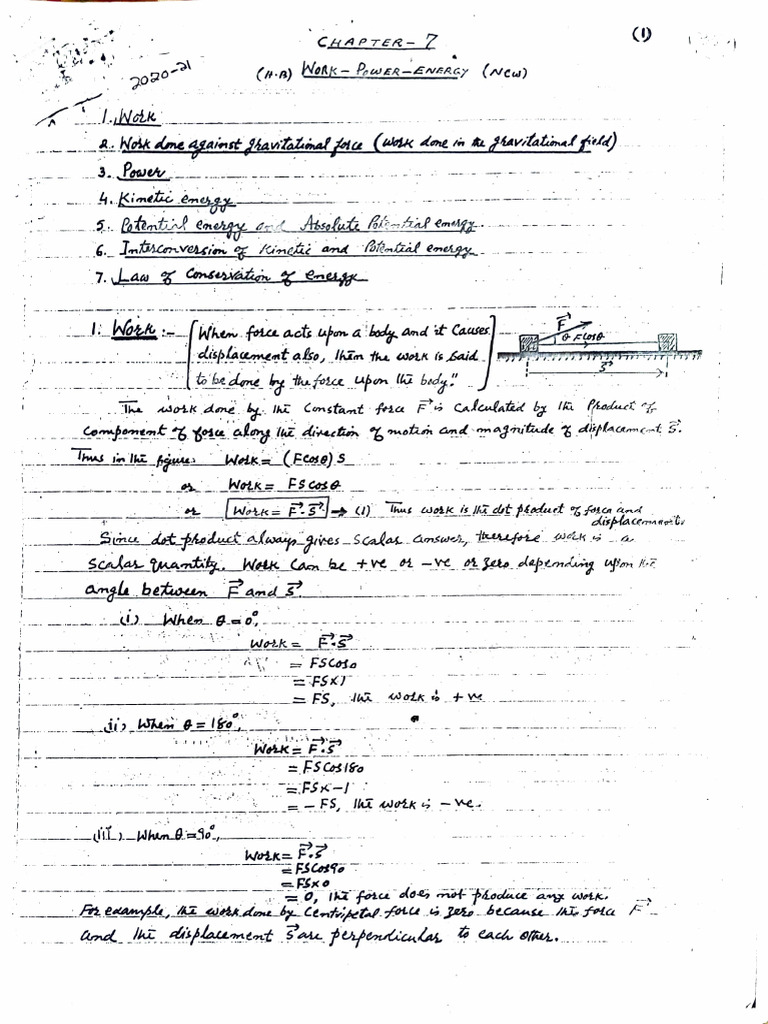 (1)
CHAPTER-7
2020-21
(H.B) WORK-POWER-ENERGY (NEW)
1. Work
2. Work done against gravitational force (work done in the gravitational field)
3. Power
4. Kinetic energy
5. Potential energy and Absolute Potential energy
6. Interconversion of Kinetic and Potential energy
7. Law of Conservation of energy
1. Work:- [When force acts upon a body and it causes
displacement also, then the work is said
to be done by the force upon the body."]
F⃗
θ Fcosθ
S⃗
The work done by the constant force F⃗ is calculated by the Product of
component of force along the direction of motion and magnitude of displacement S⃗.
Thus in the figure: Work = (Fcosθ) S
or Work = FScosθ
or Work = F⃗·S⃗ → (1) Thus work is the dot product of force and
displacement
Since dot product always gives scalar answer, therefore work is a
scalar quantity. Work can be +ve or -ve or zero depending upon the
angle between F⃗ and S⃗.
(i) When θ = 0°,
Work = F⃗·S⃗
= FScos0
= FS×1
= FS, the work is +ve
(ii) When θ = 180°,
Work = F⃗·S⃗
= FScos180
= FS×-1
= -FS, the work is -ve.
(iii) When θ = 90°,
Work = F⃗·S⃗
= FScos90
= FS×0
= 0, the force does not produce any work.
For example, the work done by centripetal force is zero because this force F⃗
and the displacement S⃗ are perpendicular to each other.